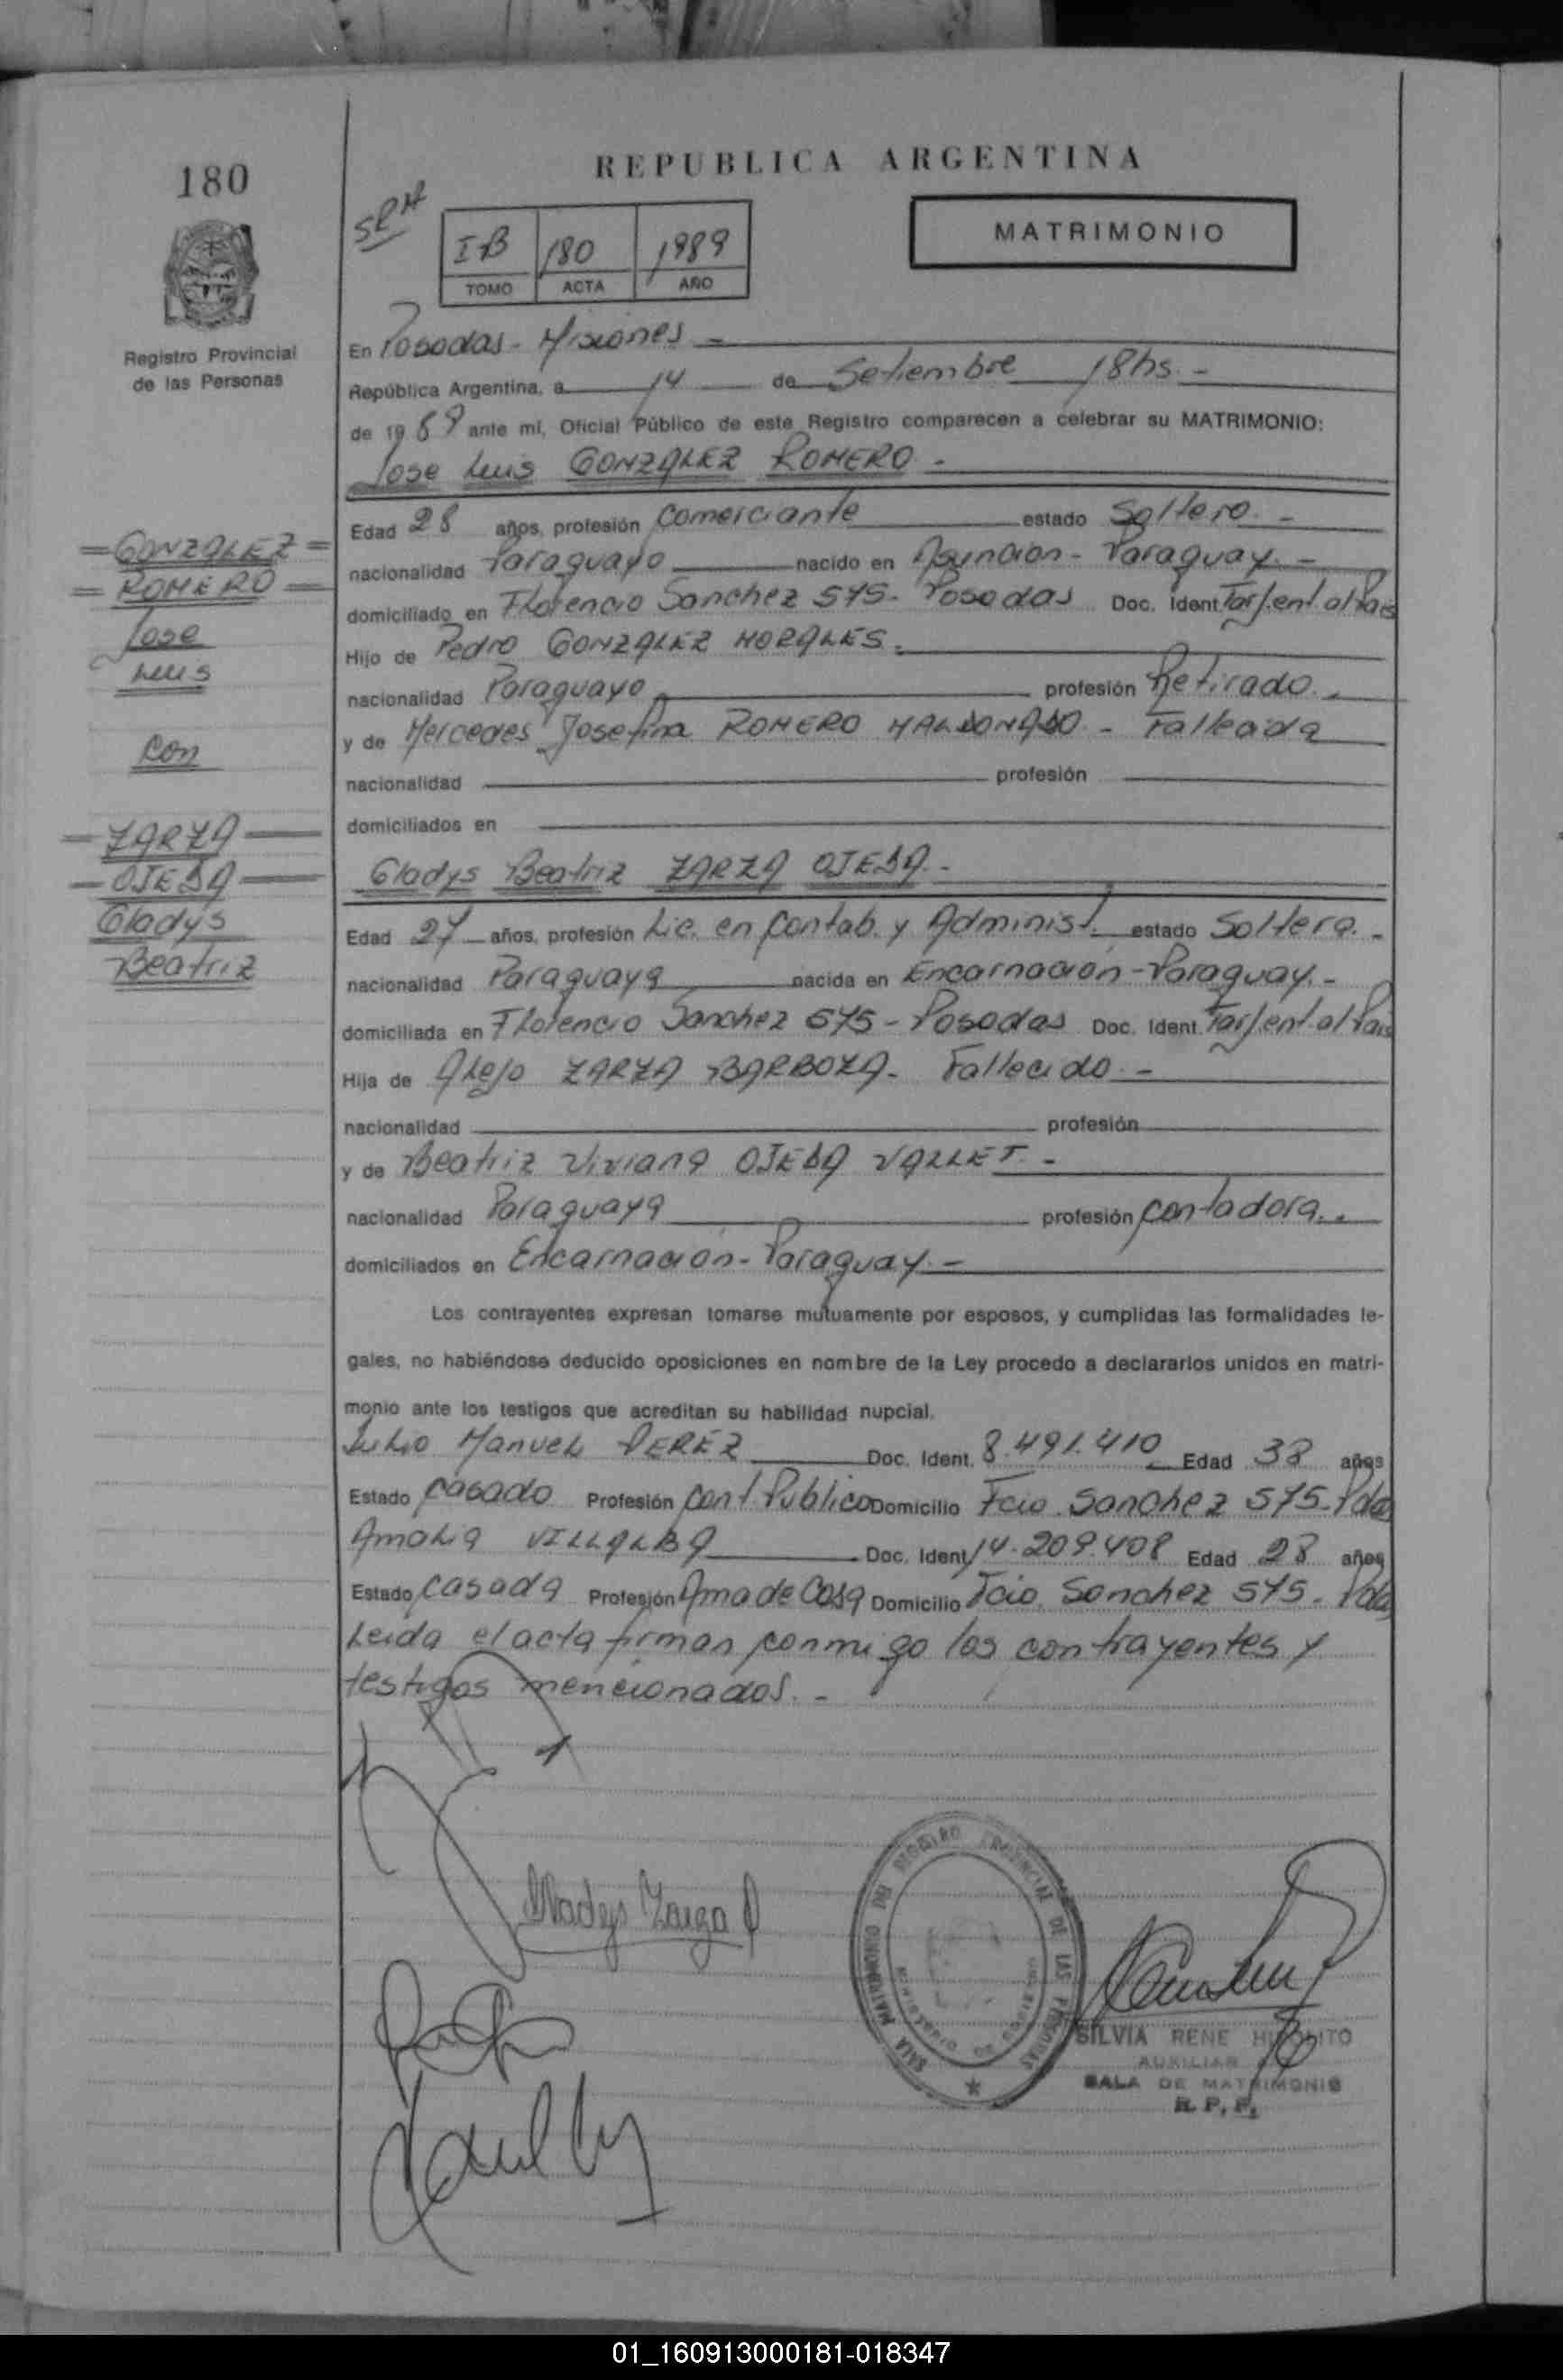 REPUBLICA ARGENTINA
180
SRH
I-B 180 1989
TOMO ACTA AÑO
MATRIMONIO
Registro Provincial
de las Personas
En Posadas - Misiones -
República Argentina, a 14 de Setiembre 18hs. -
de 1989 ante mí, Oficial Público de este Registro comparecen a celebrar su MATRIMONIO:
Jose Luis GONZALEZ ROMERO. -
=GONZALEZ=
=ROMERO=
Jose
Luis
con
-ZARZA-
-OJEDA-
Gladys
Beatriz
Edad 28 años, profesión Comerciante estado Soltero. -
nacionalidad Paraguayo nacido en Asunción - Paraguay. -
domiciliado en Florencio Sanchez 575 - Posadas Doc. Ident Tarj.ent.al Pais
Hijo de Pedro GONZALEZ MORALES. -
nacionalidad Paraguayo profesión Retirado. -
y de Mercedes Josefina ROMERO MALDONADO. - Fallecida
nacionalidad profesión
domiciliados en
Gladys Beatriz ZARZA OJEDA. -
Edad 27 años, profesión Lic. en Contab. y Administ. estado Soltera. -
nacionalidad Paraguaya nacida en Encarnación - Paraguay. -
domiciliada en Florencio Sanchez 575 - Posadas Doc. Ident. Tarj.ent.al Pais
Hija de Alejo ZARZA BARBOZA - Fallecido. -
nacionalidad profesión
y de Beatriz Viviana OJEDA VALLET. -
nacionalidad Paraguaya profesión Contadora. .
domiciliados en Encarnación - Paraguay. -
Los contrayentes expresan tomarse mutuamente por esposos, y cumplidas las formalidades le-
gales, no habiéndose deducido oposiciones en nombre de la Ley procedo a declararlos unidos en matri-
monio ante los testigos que acreditan su habilidad nupcial.
Julio Manuel PEREZ Doc. Ident. 8.491.410 Edad 38 años
Estado Casado Profesión Cont. Publico Domicilio Fcio. Sanchez 575 - Pdas
Amalia VILLALBA Doc. Ident 14.209.408 Edad 28 años
Estado Casada Profesión Ama de Casa Domicilio Fcio. Sanchez 575 - Pdas
Leida el acta firman conmigo los contrayentes y
testigos mencionados. -
Gladys Zarza O
SALA MATRIMONIO DEL REGISTRO PROVINCIAL DE LAS PERSONAS
SILVIA RENE HIPOLITO
AUXILIAR
SALA DE MATRIMONIO
R. P. P.
01_160913000181-018347